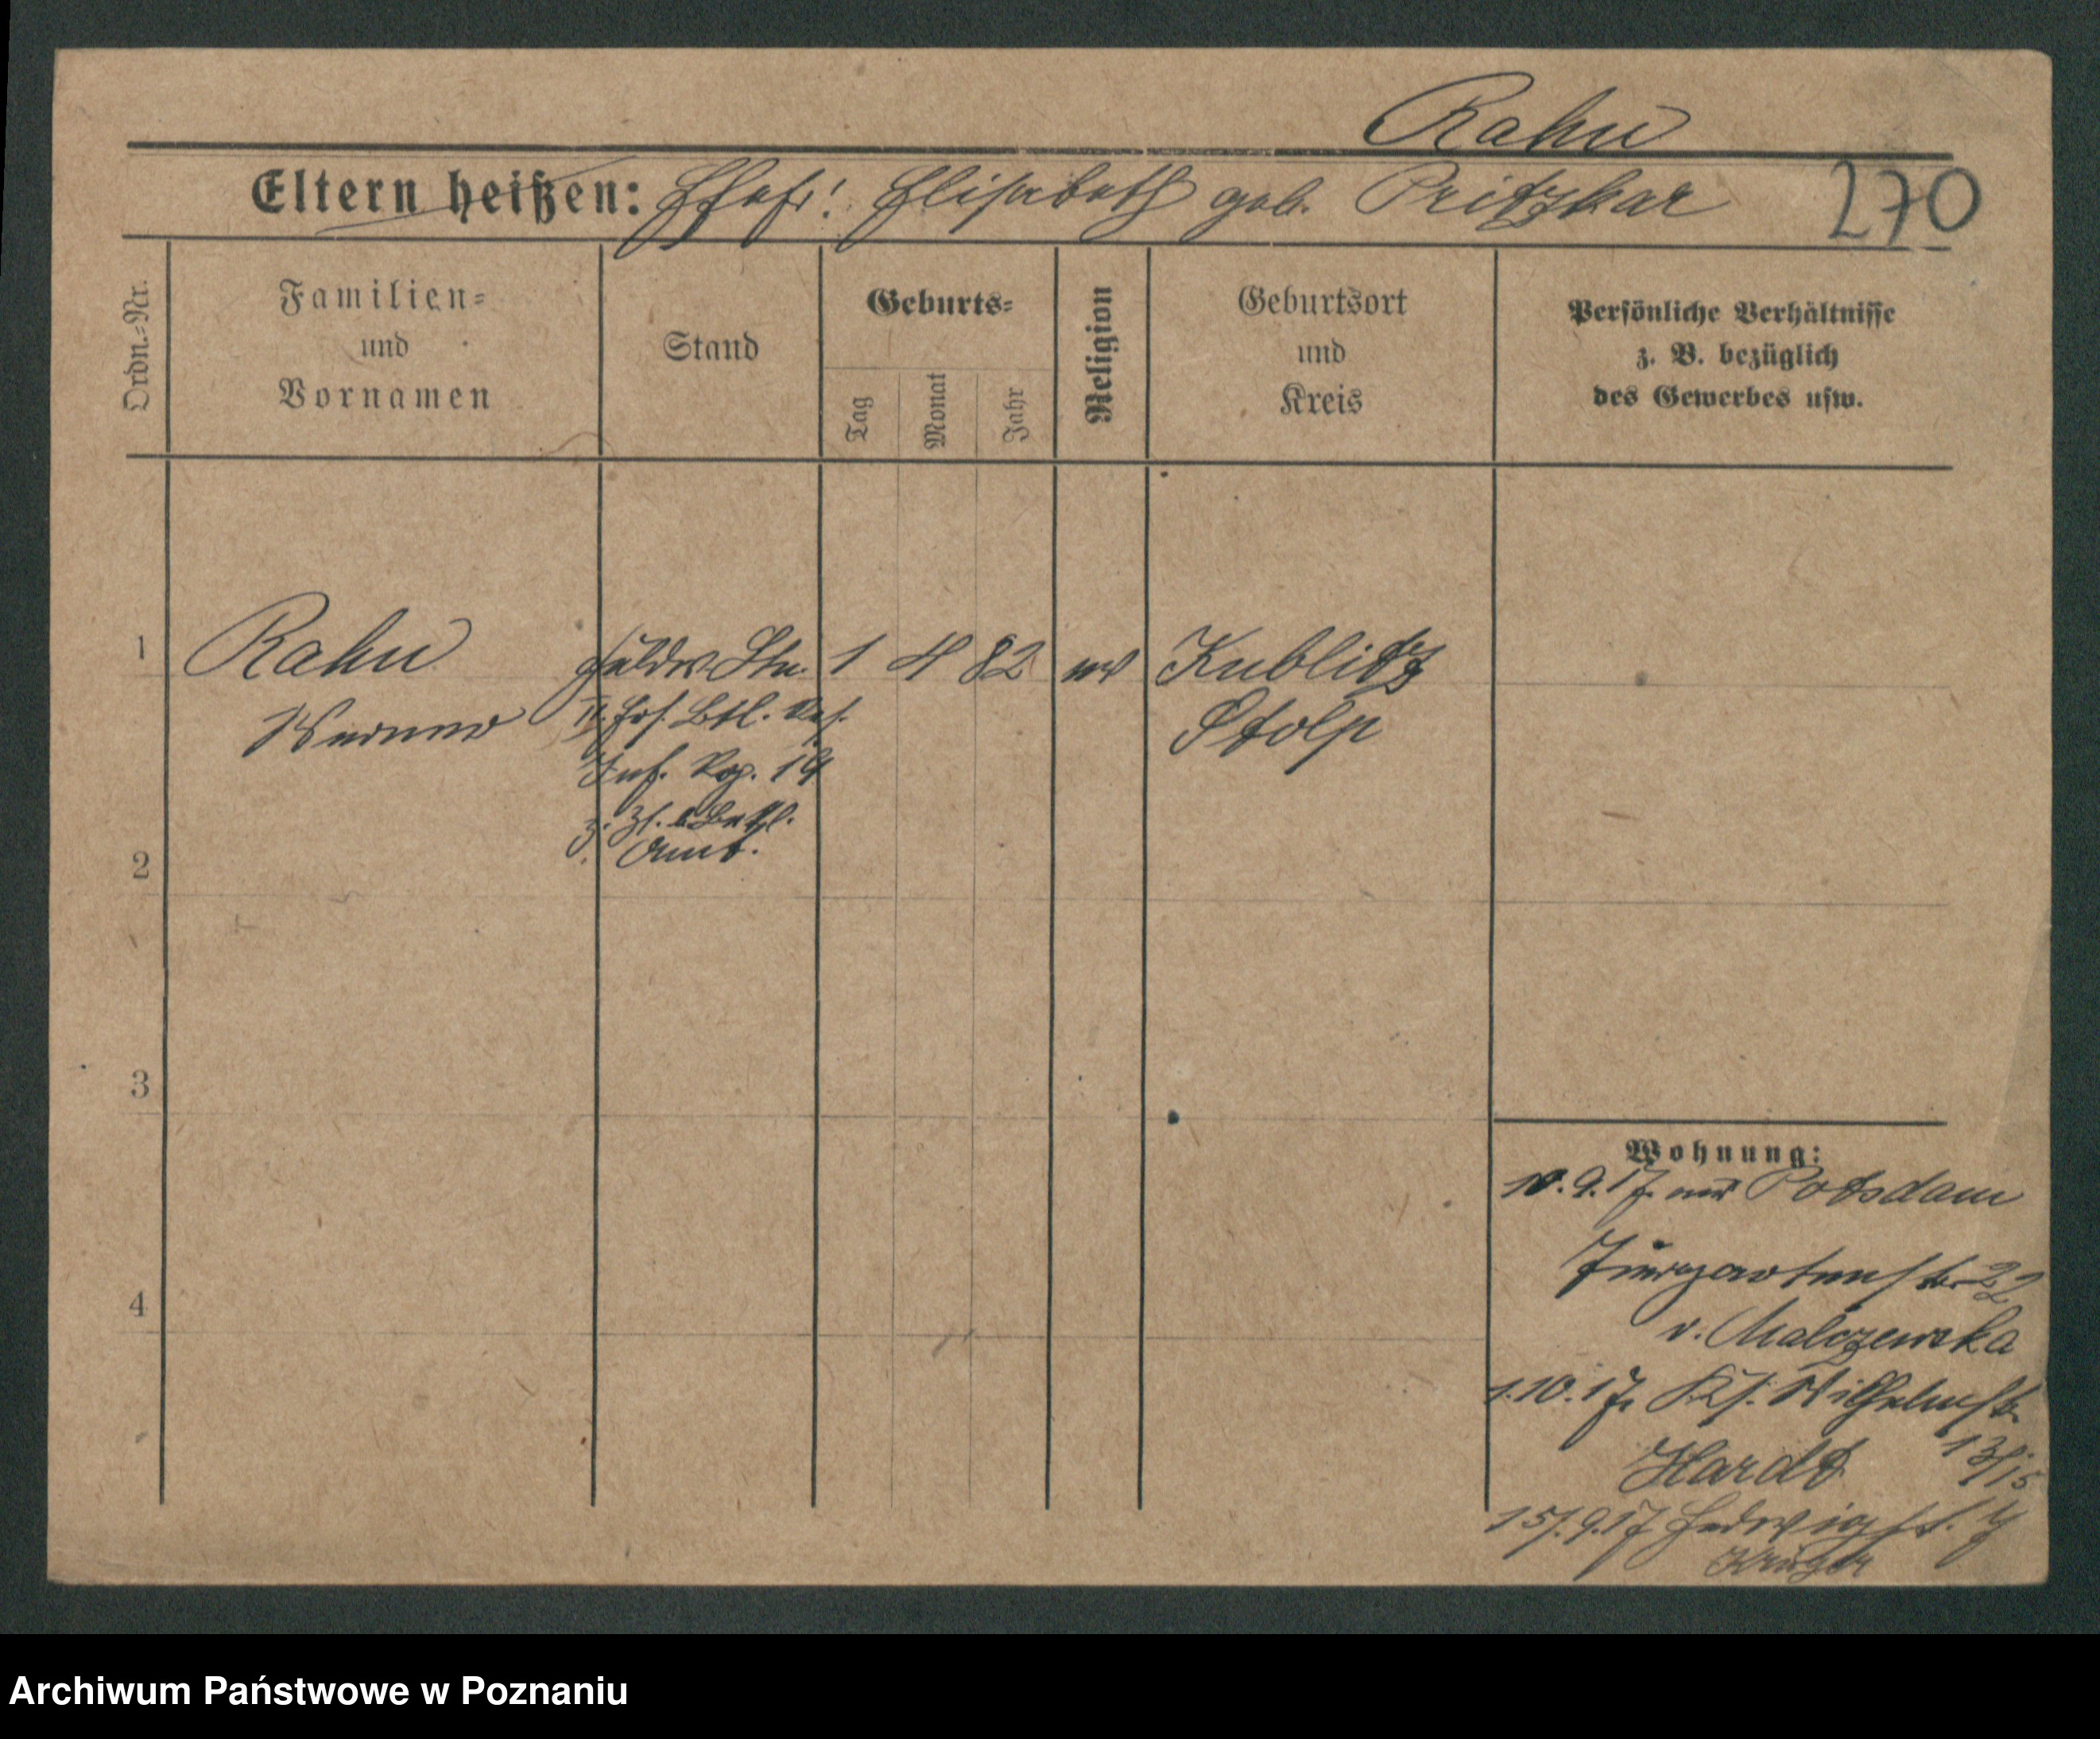 Rahn
Eltern heißen: Ehefr: Elisabeth geb. Pritzkar 270
Ordn.-Nr.
Familien-
und
Vornamen
Stand
Geburts-
Tag
Monat
Jahr
Religion
Geburtsort
und
Kreis
Persönliche Verhältnisse
z. B. bezüglich
des Gewerbes usw.
1 Rahn 1 4 82 ev Kublitz
Werner II. Ers. Btl. Res. Stolp
Inf. Reg. 19
Amt.
2
3
4
Wohnung:
10.9.17. aus Potsdam
22
v. Malczewska
1.10.17. Ks. Wilhelmstr.
Hardt 13/15
15.9.17 Hedwigstr.
Krüger
Archiwum Państwowe w Poznaniu